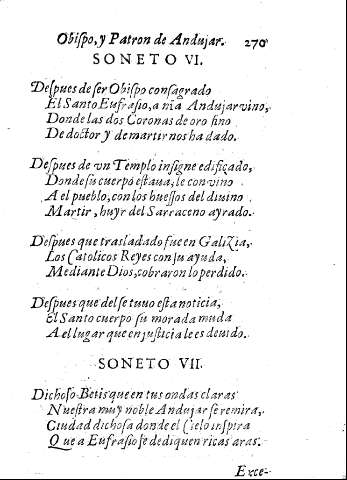 Obiſpo, y Patron de Andujar. 270
SONETO VI.
Deſpues de ſer Obiſpo conſagrado
El Santo Eufraſio, a n̄ra Andujar vino,
Donde las dos Coronas de oro fino
De doctor y de martir nos ha dado.
Deſpues de vn Templo inſigne edificado,
Donde ſu cuerpo eſtaua, le conuino
A el pueblo, con los hueſſos del diuino
Martir, huyr del Sarraceno ayrado.
Deſpues que trasladado fue en Galizia,
Los Catolicos Reyes con ſu ayuda,
Mediante Dios, cobraron lo perdido.
Deſpues que del ſe tuuo eſta noticia,
El Santo cuerpo ſu morada muda
A el lugar que en juſticia le es deuido.
SONETO VII.
Dichoſo Betis que en tus ondas claras
Nueſtra muy noble Andujar ſe remira,
Ciudad dichoſa donde el Cielo inſpira
Que a Eufraſio ſe dediquen ricas aras.
Exce-